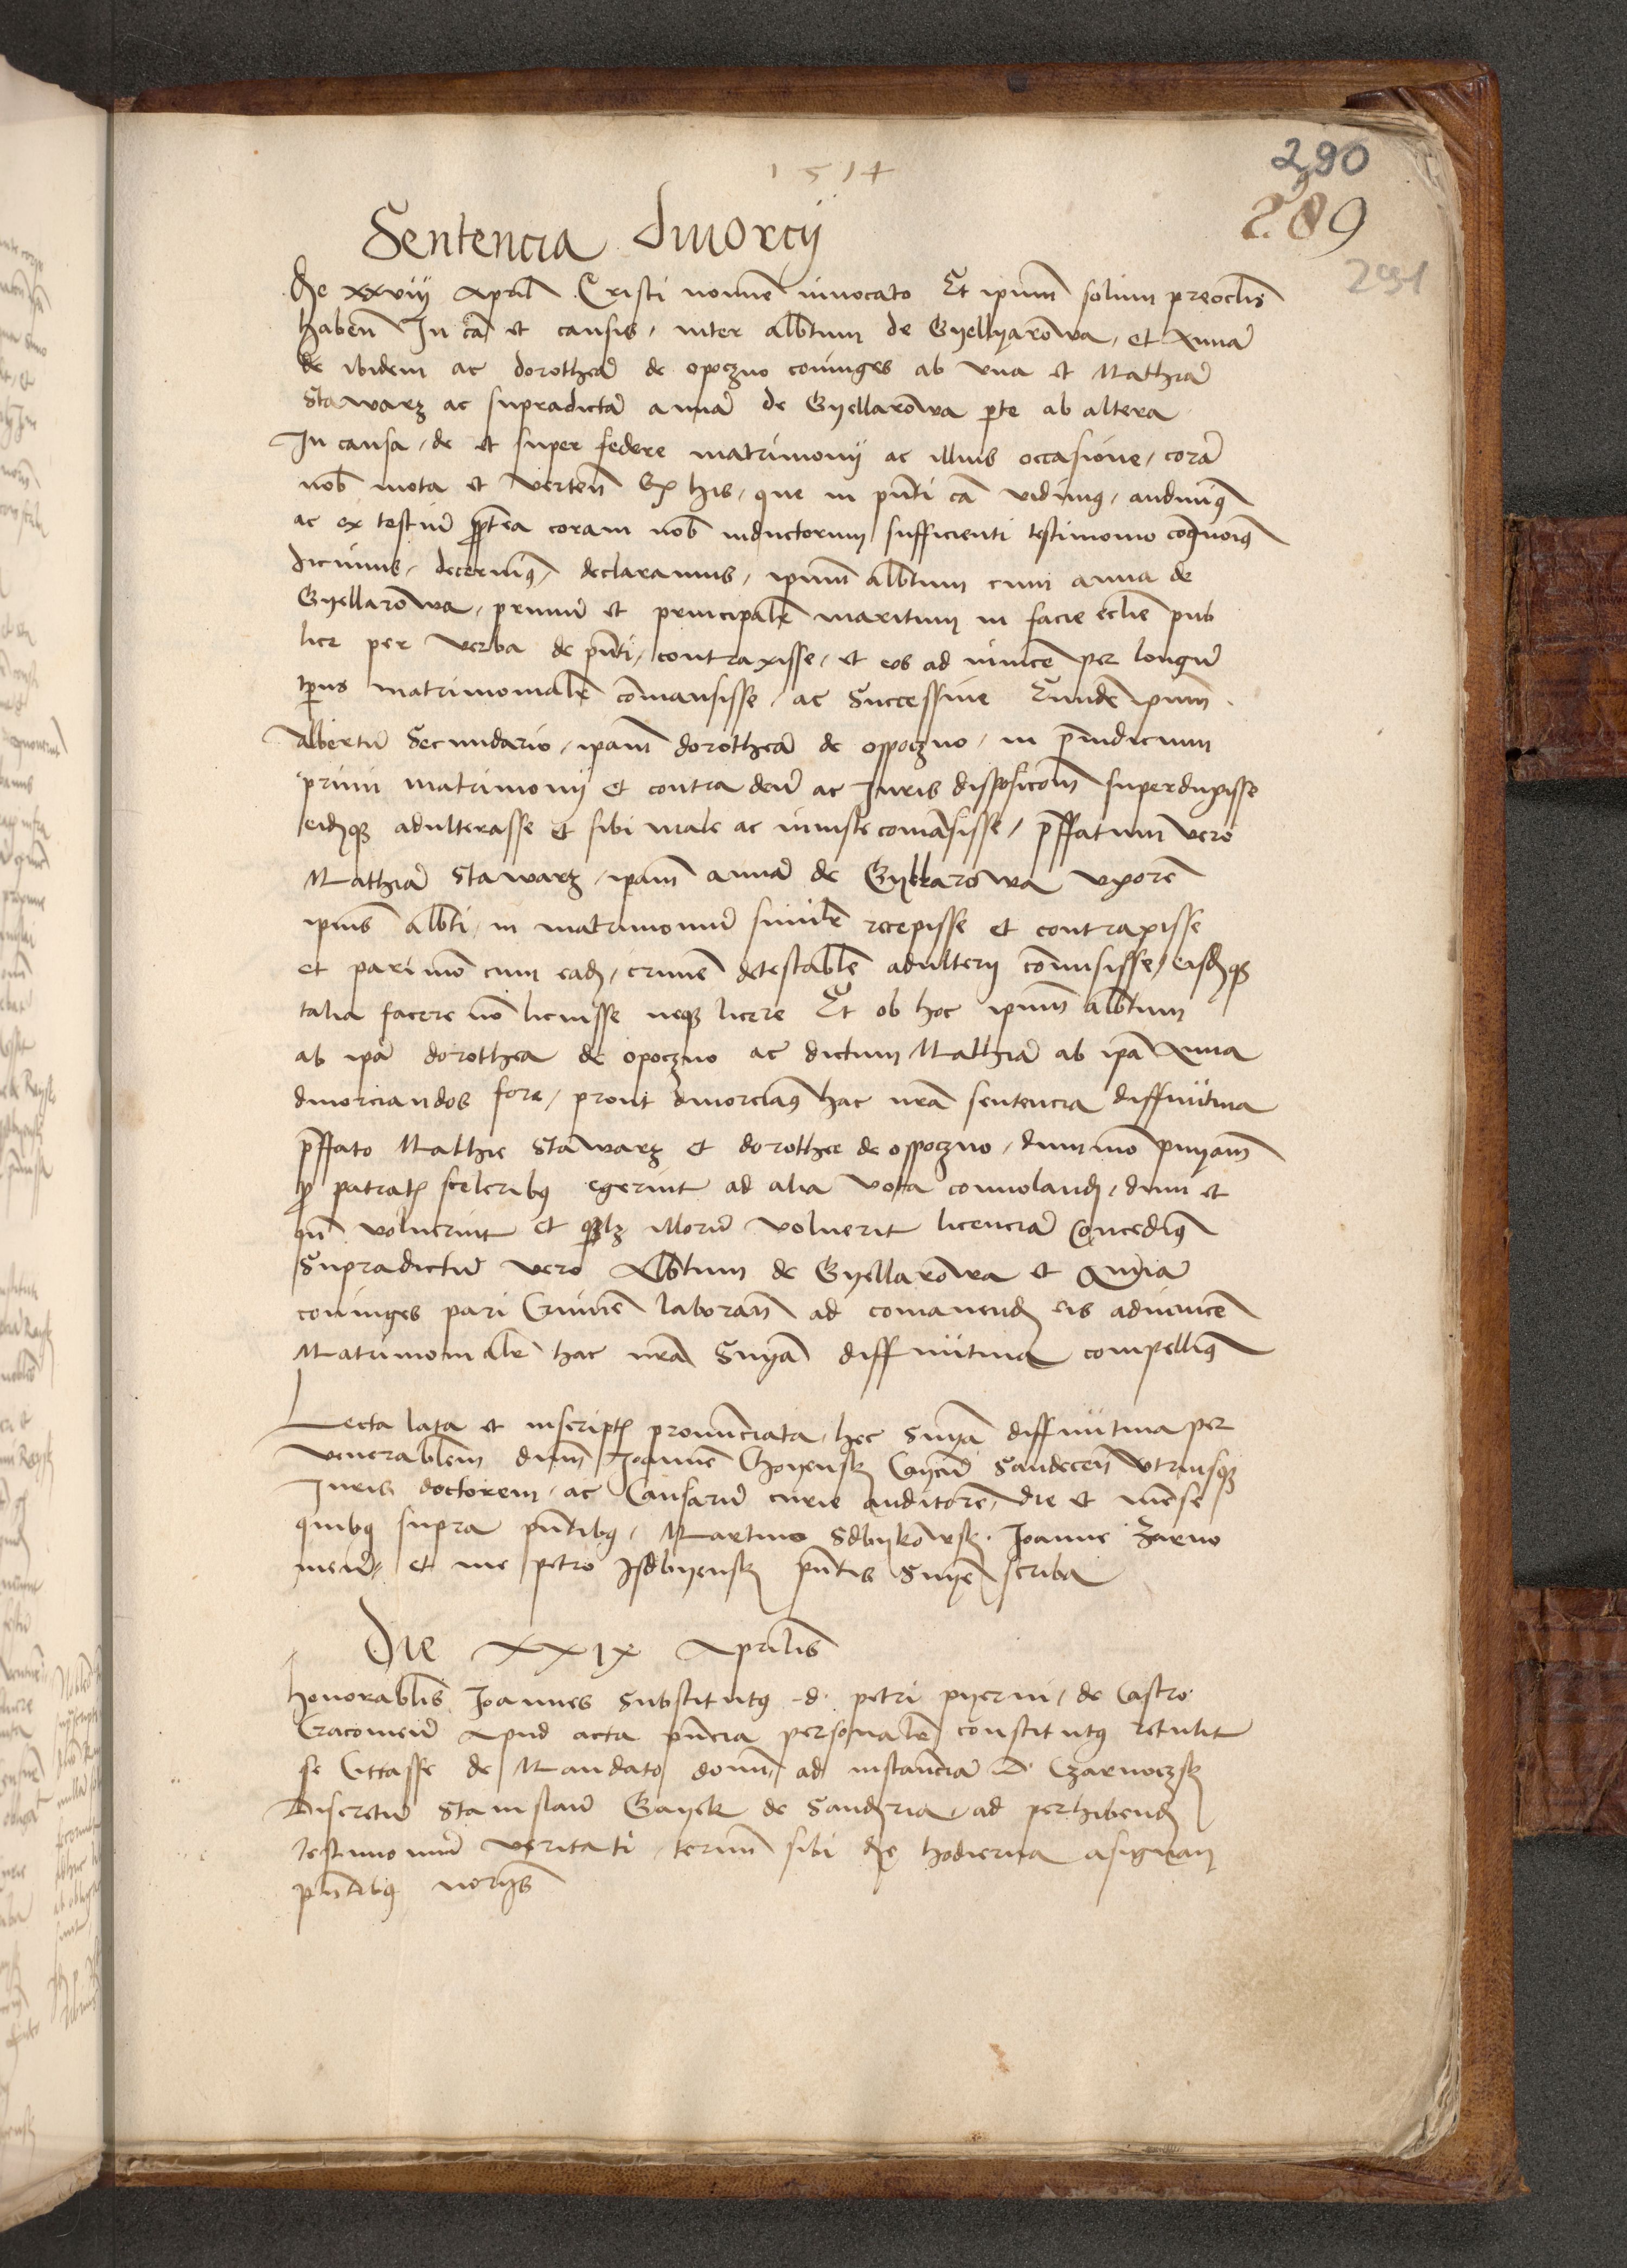 1514
290
289
291
Sentencia divorcij
Die xxviij April Cristi nomine invocato Et ipum solum preoclis
haben In ca et causis, inter albtum de Gyellyarowa, et Anna
de ibidem ac dorothea de opoczno coniuges ab una et Mathia
Stawarz ac supradicta anna de Gyellarowa pte ab altera
In causa, de et super federe matrimonij ac illius occasione, cora
nob mota et verten Ex his, que in pnti ca vidimus, audiuimus
ac ex testiu ptea coram nob inductorum sufficienti testimonio
dicimus, decernimus, declaramus, ipum albtum cum anna de
Gyellarowa, primu et principale maritum in facie eclie pub
lice per verba de pnti, contraxisse, et eos ad invice per longu
tpus matrimonialr comansisse, ac Successive Eunde ipum
Albertu Secundario, ipam dorothea de oppoczno, in preiudicium
primi matrimonij et contra deu ac Iuris disposicom superduxisse
eidque adulterasse et sibi male ac iniuste comasisse, prffatum vero
Mathia Stawarz, ipam anna de Gyellarowa Uxore
ipius albti, in matrimoniu similr recepisse et contraxisse
et parimo cum ead, crimen detestabile adulterij comisisse, eisdque
talia facere no licuisse neque licere Et ob hoc ipum albtum
ab ipa dorothea de opoczno ac dictum Mathia ab ipa Anna
divorciandos fore, prout divorciamus hac nra sentencia diffinitiva
prffato Mathie Stawarz et dorothee de oppoczno, dummo pniam
pro patratis sceleribus egerint ad alia vota convoland, dum et
qn voluerint et qlz illoru voluerit licencia Concedimus
Supradictu vero Albtum de Gyellarowa et Anna
coniuges pari Crimine laboran ad comanend eis adinvice
Matrimonialr hac nra Snia diffinitiva compellimus
Lecta lata et inscriptis pronunciata, hec Snia diffinitiva per
venerablem dnm Joanne Choyensk Canicu Sandecen Utriusque
Iuris doctorem, ac Causaru curie auditore, die et mense
quibus supra pntibus, Martino Sdbykowsk. Joanne Zarno
et me petro Isdbyensk pntis Snie scriba
Die XXIX Aprilis
Honorablis Joannes Substitutus d. petri pyerni, de Castro
Cracovien Apud acta pncia personalr constitutus retulit
se Cittasse de Mandato domini ad instancia D. Czarnoczsk
Discretu Stanislau Gayek de Sandzia, ad perhibend
testimoniu veritati, termn sibi die hodierna asignan
pntibus norijs